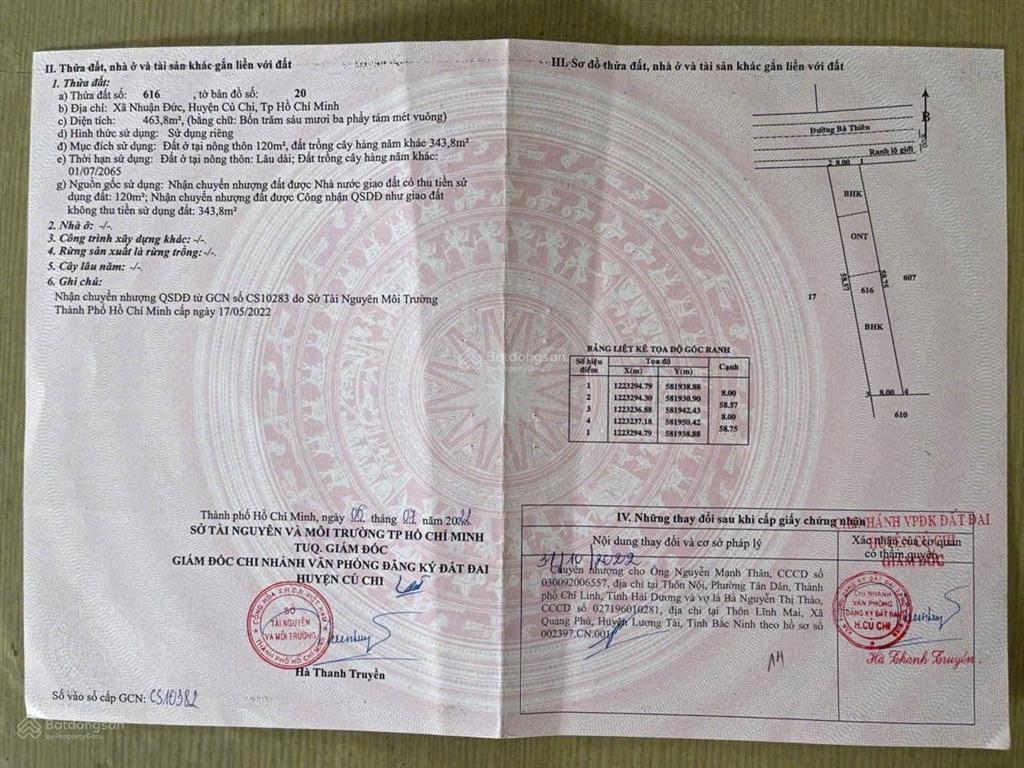 II. Thửa đất, nhà ở và tài sản khác gắn liền với đất
1. Thửa đất:
a) Thửa đất số: 616 , tờ bản đồ số: 20
b) Địa chỉ: Xã Nhuận Đức, Huyện Củ Chi, Tp Hồ Chí Minh
c) Diện tích: 463,8m², (bằng chữ: Bốn trăm sáu mươi ba phẩy tám mét vuông)
d) Hình thức sử dụng: Sử dụng riêng
đ) Mục đích sử dụng: Đất ở tại nông thôn 120m², đất trồng cây hàng năm khác 343,8m²
e) Thời hạn sử dụng: Đất ở tại nông thôn: Lâu dài; Đất trồng cây hàng năm khác:
01/07/2065
g) Nguồn gốc sử dụng: Nhận chuyển nhượng đất được Nhà nước giao đất có thu tiền sử
dụng đất: 120m²; Nhận chuyển nhượng đất được Công nhận QSDĐ như giao đất
không thu tiền sử dụng đất: 343,8m²
2. Nhà ở: -/-.
3. Công trình xây dựng khác: -/-.
4. Rừng sản xuất là rừng trồng:-/-.
5. Cây lâu năm: -/-.
6. Ghi chú:
Nhận chuyển nhượng QSDĐ từ GCN số CS10283 do Sở Tài Nguyên Môi Trường
Thành Phố Hồ Chí Minh cấp ngày 17/05/2022
Thành phố Hồ Chí Minh, ngày 05 tháng 07 năm 2022
SỞ TÀI NGUYÊN VÀ MÔI TRƯỜNG TP HỒ CHÍ MINH
TUQ. GIÁM ĐỐC
GIÁM ĐỐC CHI NHÁNH VĂN PHÒNG ĐĂNG KÝ ĐẤT ĐAI
HUYỆN CỦ CHI
CỘNG HÒA X.H.C.N VIỆT NAM
SỞ
TÀI NGUYÊN
VÀ MÔI TRƯỜNG
THÀNH PHỐ HỒ CHÍ MINH
Hà Thanh Truyền
Số vào sổ cấp GCN: CS10382
III. Sơ đồ thửa đất, nhà ở và tài sản khác gắn liền với đất
B
Đường Bà Thiên
Ranh lộ giới
2 8.00 1
BHK
ONT
58.57
58.75
607
616
17
BHK
3 8.00 4
610
BẢNG LIỆT KÊ TỌA ĐỘ GÓC RANH
Số hiệu điểm Tọa độ Cạnh
X(m) Y(m)
1 1223294.79 581938.88
8.00
2 1223294.30 581930.90
58.57
3 1223236.88 581942.43
8.00
4 1223237.18 581950.42
58.75
1 1223294.79 581938.88
IV. Những thay đổi sau khi cấp giấy chứng nhận
Nội dung thay đổi và cơ sở pháp lý
Xác nhận của cơ quan
có thẩm quyền
CHI NHÁNH VPĐK ĐẤT ĐAI
HUYỆN CỦ CHI
GIÁM ĐỐC
31/10/2022
Chuyển nhượng cho Ông Nguyễn Mạnh Thân, CCCD số
030092006557, địa chỉ tại Thôn Nội, Phường Tân Dân, Thành
phố Chí Linh, Tỉnh Hải Dương và vợ là Bà Nguyễn Thị Thảo,
CCCD số 027196010281, địa chỉ tại Thôn Lĩnh Mai, Xã
Quảng Phú, Huyện Lương Tài, Tỉnh Bắc Ninh theo hồ sơ số
002397.CN.001
CHI NHÁNH
VĂN PHÒNG
ĐĂNG KÝ ĐẤT ĐAI
H.CỦ CHI
Hà Thanh Truyền.
Batdongsan
Batdongsan
by PropertyGuru